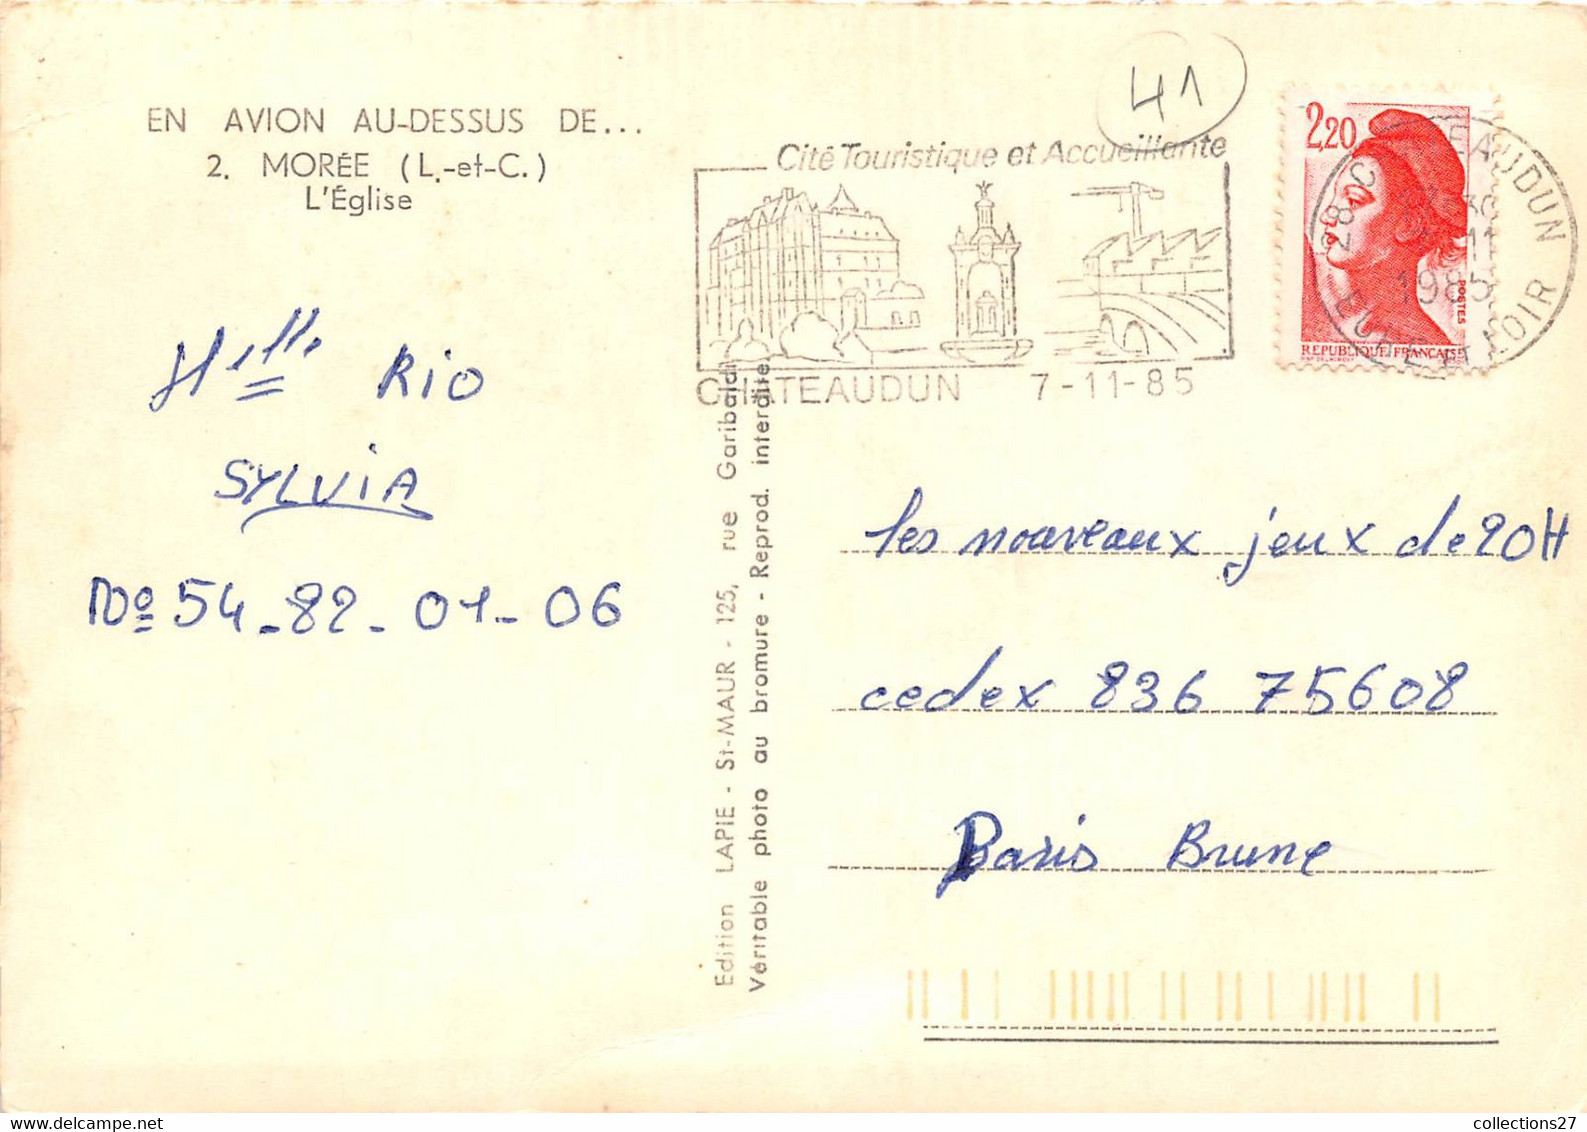 EN AVION AU-DESSUS DE...
2. MORÉE (L.-et-C.)
L'Église
41
Cité Touristique et Accueillante
CHATEAUDUN 7-11-85
2,20
POSTES
REPUBLIQUE FRANÇAISE
28 CHATEAUDUN
1985
EURE ET LOIR
Melle RIO
SYLVIA
No 54-82-01-06
Edition LAPIE - St-MAUR - 125, rue Garibaldi
Véritable photo au bromure - Reprod. interdite.
les nouveaux jeux de 20H
cedex 836 75608
Paris Brune
collections27